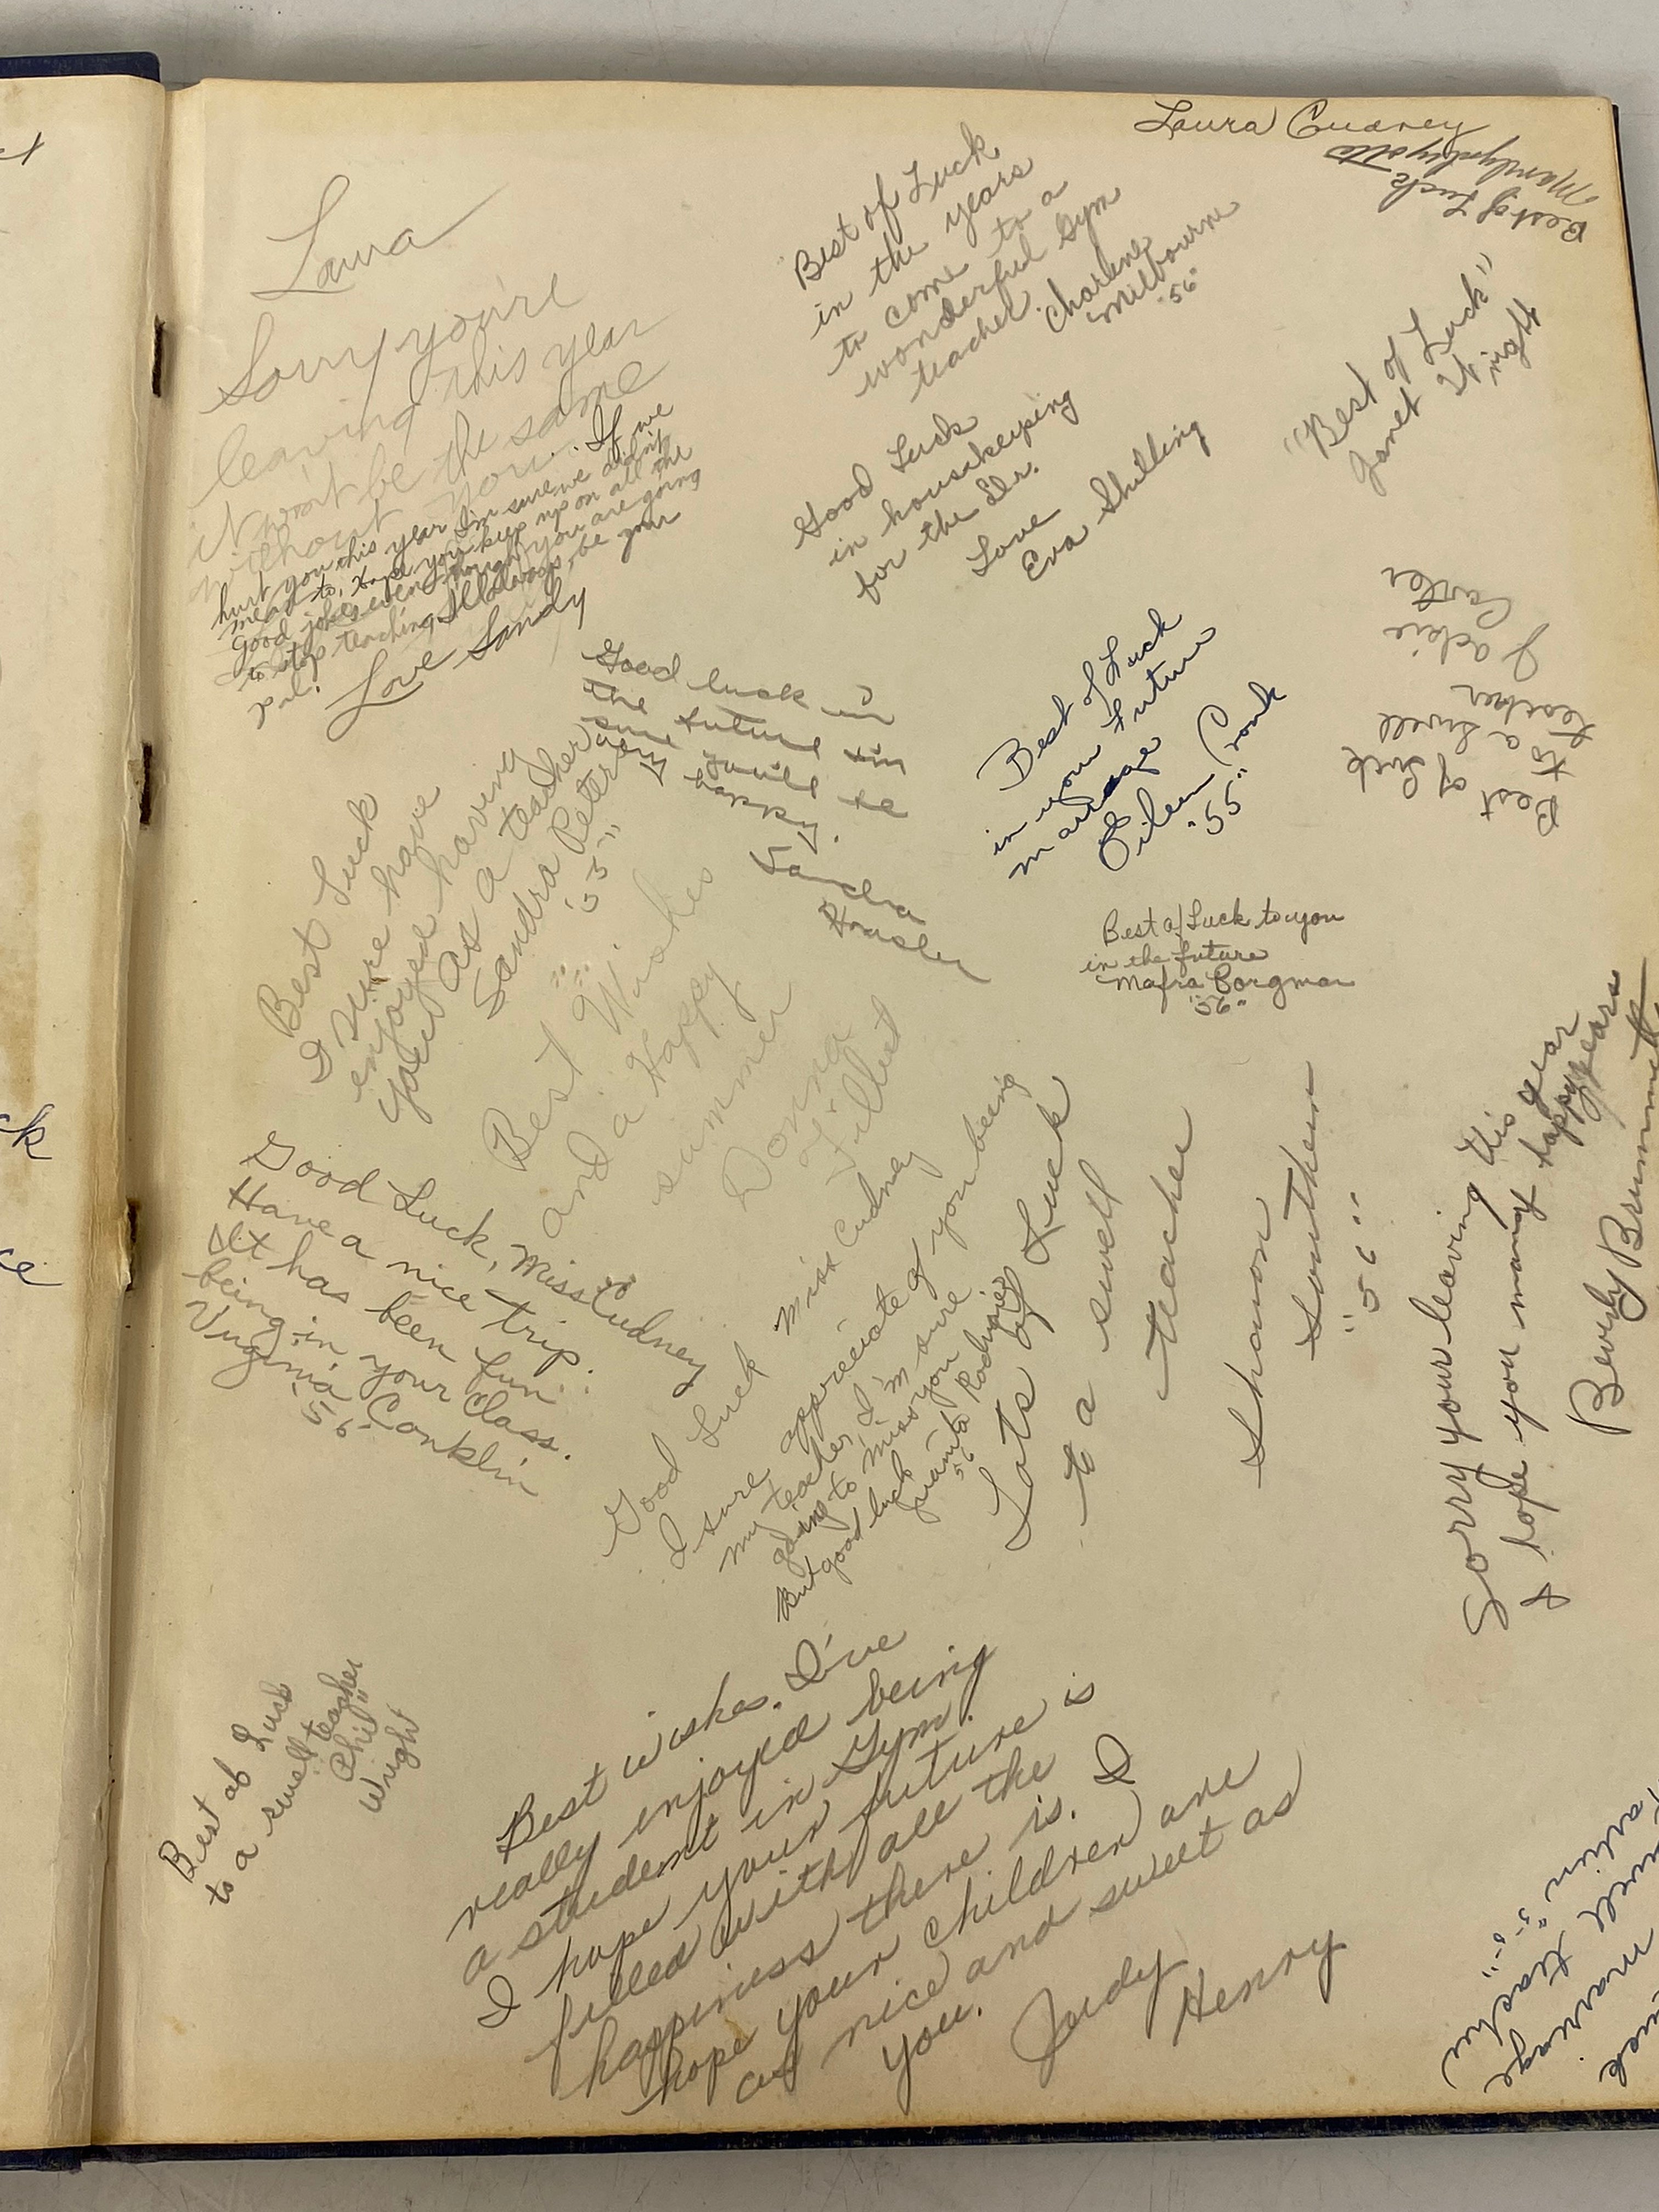 Laura Cudney
Best of Luck
Marilyn
Laura
Sorry you're
leaving this year
it won't be the same
without you. If we
hurt you this year I'm sure we didn't
mean to, Hope you keep up on all the
good jokes even though you are going
to stop teaching. I'll always be your
pal.
Love Sandy
Best of Luck
in the years
to come to a
wonderful Gym
teacher. Charlene
Milbourne
"56"
"Best of Luck"
Janet
Good Luck
in housekeeping
for the Dr.
Love
Eva Shilling
Good luck in
the future I'm
sure you'll be
very happy.
Sandra
Best of Luck
in your future
marrage
Eileen Cronk
"55"
Best
of Luck
to a swell
teacher
Jackie
Carter
Best of Luck to you
in the future
Mafra Borgman
"56"
Best Luck
I sure have
enjoyed having
you as a teacher
Sandra Peters
"55"
Best Wishes
and a Happy
summer
Donna
Filbert
Good Luck, Miss Cudney
Have a nice trip.
It has been fun
being in your Class.
Virginia Conklin
"56"
Good Luck Miss Cudney
I sure appreciate of you being
my teacher, I'm sure
going to miss you
But good luck
Juanita Rodriguez
56
Lots of Luck
to a swell
teacher
Sharon
Souther
"56"
Sorry your leaving this year
I hope you many happy years
Beverly Brummett
Best ob Luck
to a swell teacher
"Phil"
Wright
Best wishes. I've
really enjoyed being
a student in Gym.
I hope your future is
filled with all the
happiness there is. I
hope your children are
as nice and sweet as
you.
Judy
Henry
marriage
swell teacher
"55"